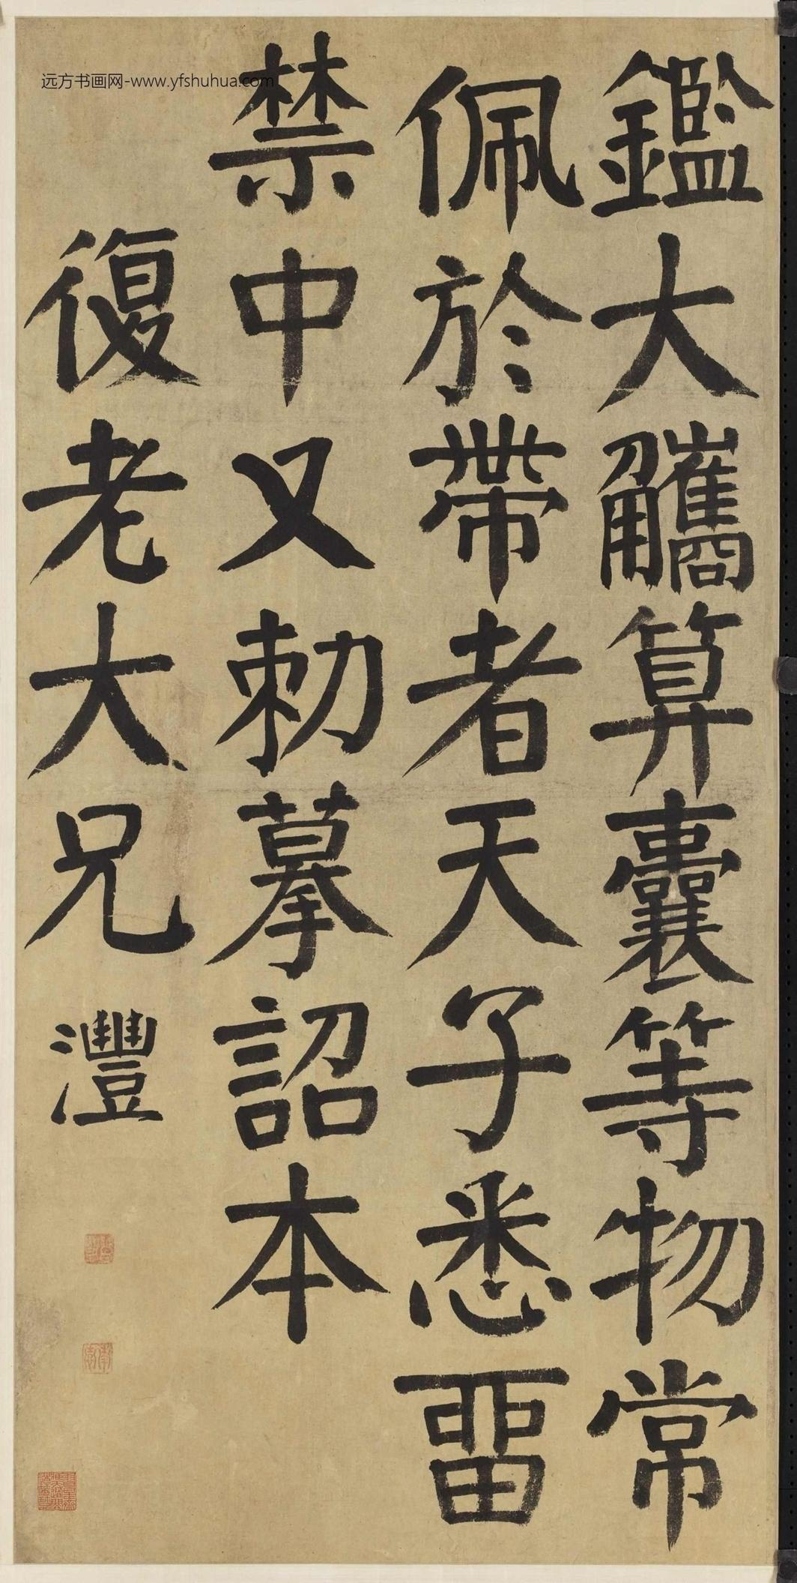 鑑大觿算囊等物常
佩於帶者天子悉畱
禁中又勅摹詔本
復老大兄 灃
远方书画网-www.yfshuhua.com